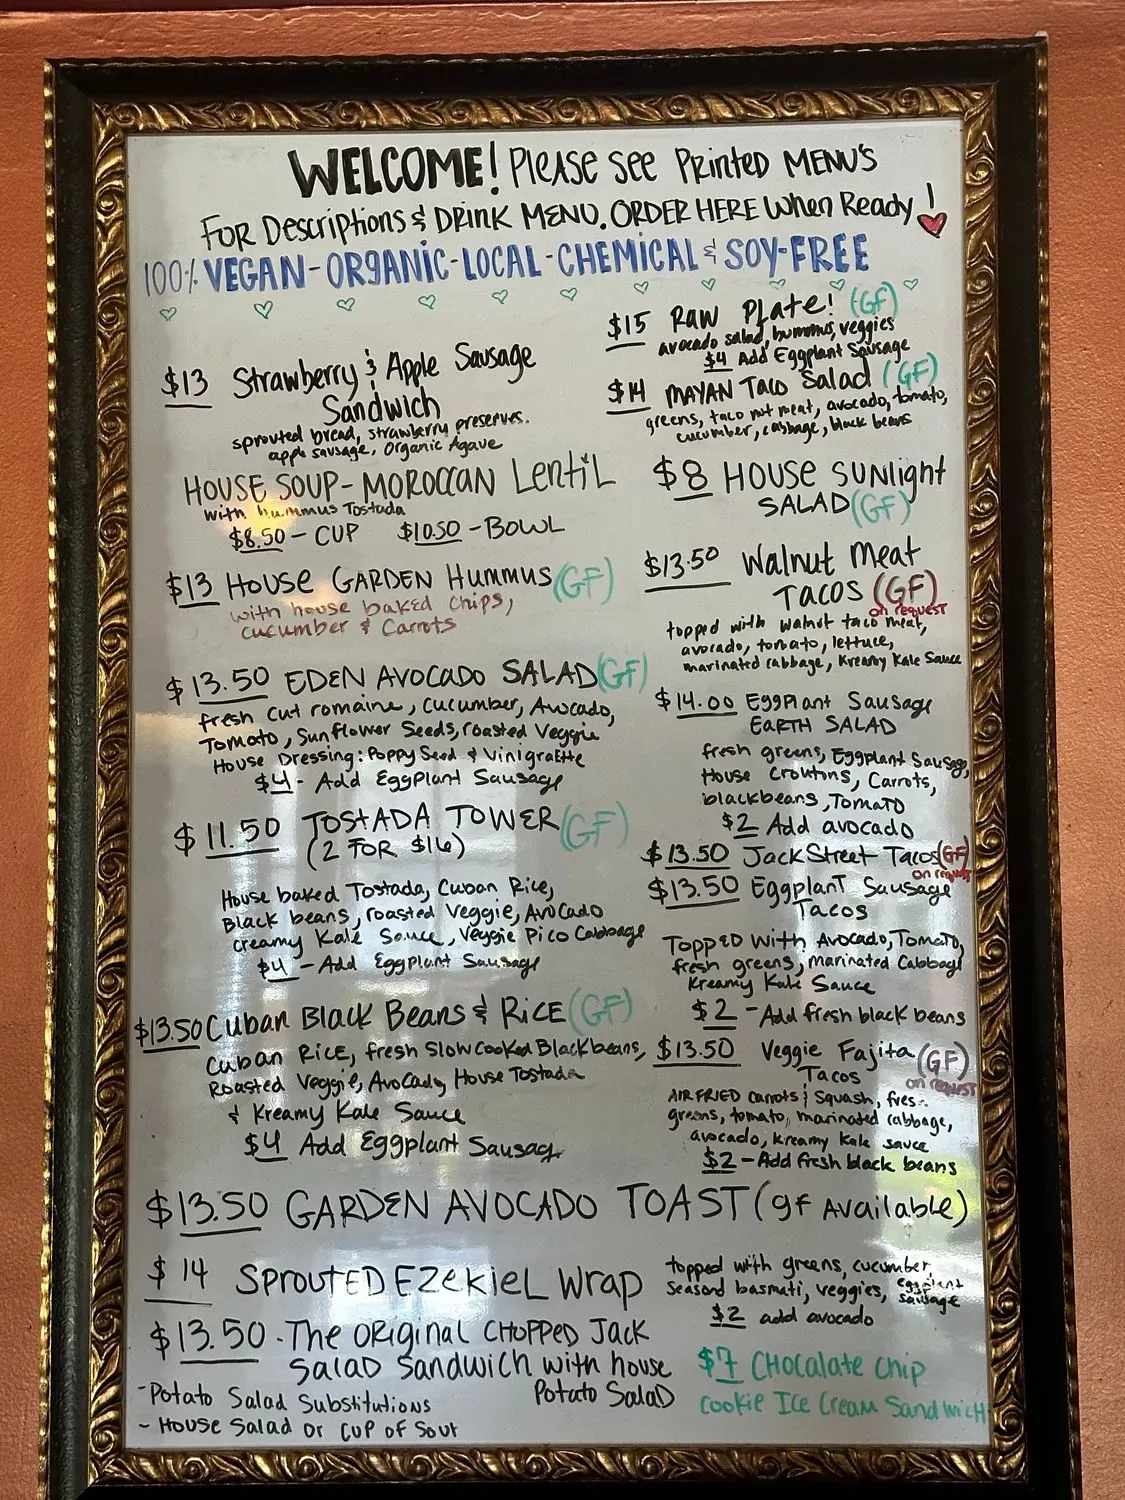 WELCOME! Please see Printed MENU'S
For Descriptions & Drink MENU. ORDER HERE When Ready!
100% VEGAN-ORGANIC-LOCAL-CHEMICAL & SOY-FREE
$13 Strawberry & Apple Sausage
Sandwich
sprouted bread, strawberry preserves.
apple sausage, Organic Agave
HOUSE SOUP-MOROCCAN Lentil
with hummus Tostada
$8.50 - CUP $10.50 - BOWL
$13 House GARDEN Hummus (GF)
with house baked chips,
cucumber & Carrots
$13.50 EDEN AVOCADO SALAD (GF)
fresh cut romaine, cucumber, Avocado,
Tomato, Sunflower Seeds, roasted Veggie
House Dressing: Poppy Seed & Vinigraette
$4 - Add Eggplant Sausage
$11.50 TOSTADA TOWER (GF)
(2 FOR $16)
House baked Tostada, Cuban Rice,
Black beans, roasted Veggie, Avocado
creamy Kale Sauce, Veggie Pico Cabbage
$4 - Add Eggplant Sausage
$13.50 Cuban Black Beans & Rice (GF)
Cuban Rice, fresh Slow Cooked Black beans,
Roasted Veggie, Avocado, House Tostada
& Kreamy Kale Sauce
$4 Add Eggplant Sausage
$15 RAW Plate! (GF)
avocado salad, hummus, veggies
$4 Add Eggplant Sausage
$14 MAYAN Taco Salad (GF)
greens, taco nut meat, avocado, tomato,
cucumber, cabbage, black beans
$8 HOUSE SUNlight
SALAD (GF)
$13.50 Walnut Meat
TACOS (GF)
on request
topped with walnut taco meat,
avocado, tomato, lettuce,
marinated cabbage, Kreamy Kale Sauce
$14.00 Eggplant Sausage
EARTH SALAD
fresh greens, Eggplant Sausage,
House Croutons, Carrots,
blackbeans, Tomato
$2 Add avocado
$13.50 Jack Street Tacos (GF)
on request
$13.50 Eggplant Sausage
Tacos
Topped With Avocado, Tomato,
fresh greens, marinated Cabbage
Kreamy Kale Sauce
$2 - Add fresh black beans
$13.50 Veggie Fajita (GF)
Tacos on request
AIRFRIED carrots & squash, fres
greens, tomato, marinated cabbage,
avocado, kreamy kale sauce
$2 - Add fresh black beans
$13.50 GARDEN AVOCADO TOAST (gf Available)
$14 SprouteD EZEKIEL Wrap
topped with greens, cucumber,
seasond basmati, veggies, eggplant
sausage
$2 add avocado
$13.50 - The Original CHOPPED Jack
Salad Sandwich with house
Potato Salad
- Potato Salad Substitutions
- House Salad or Cup of Soup
$7 CHocalate chip
cookie Ice Cream Sandwich